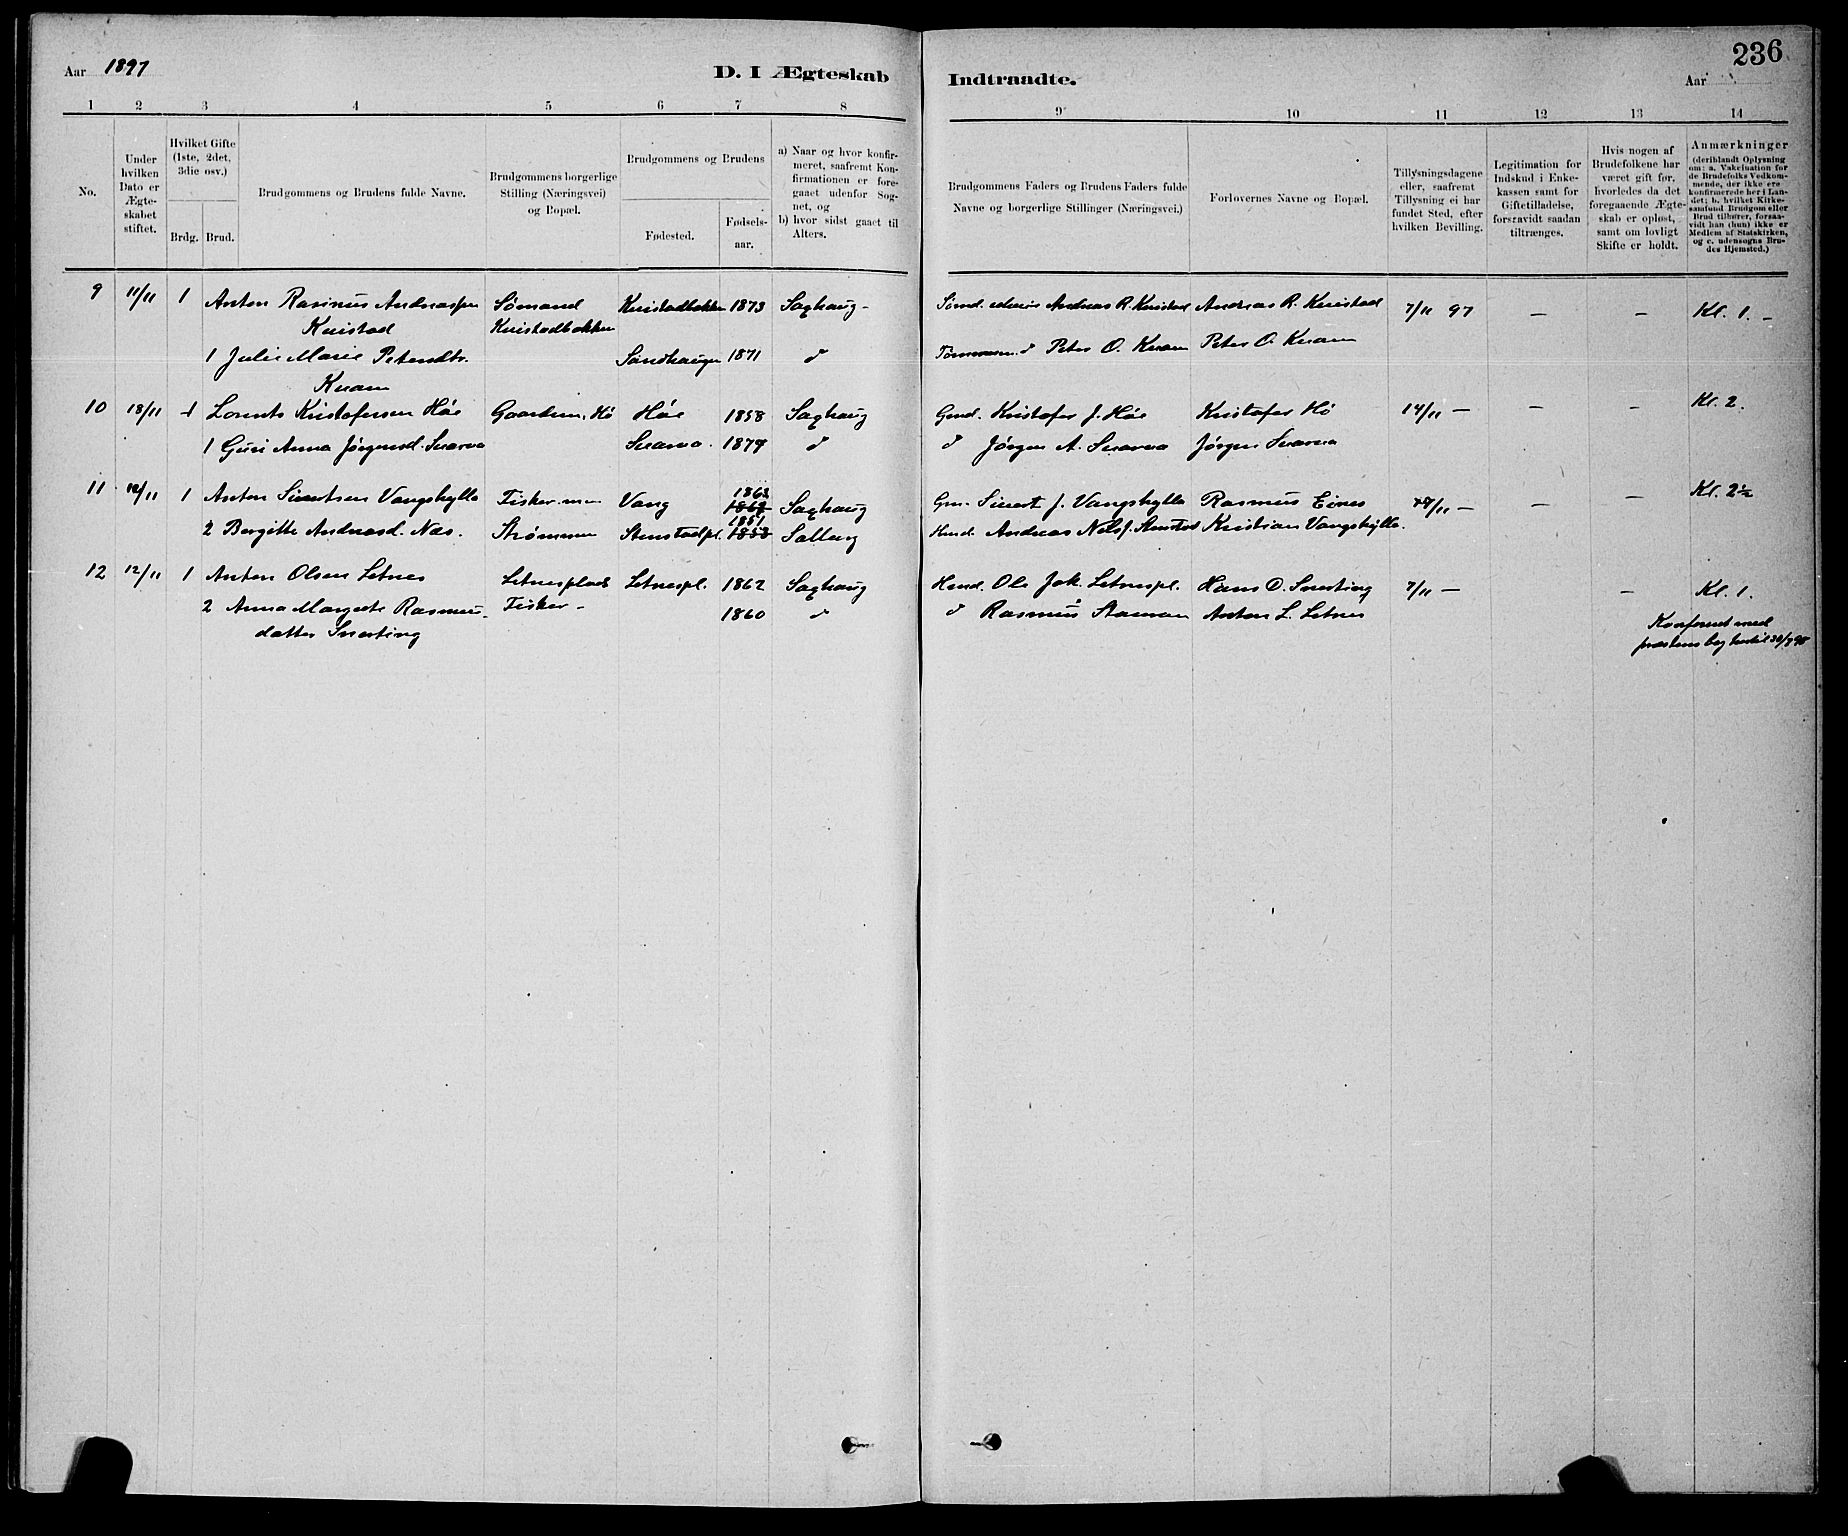 Aar 1897
D. I Ægteskab Indtraadte.
236
Aar
1 2 3 4 5 6 7 8 9 10 11 12 13 14
No.
Under hvilken Dato er Ægte-skabet stiftet.
Hvilket Gifte (1ste, 2det, 3die osv.)
Brdg. Brud.
Brudgommens og Brudens fulde Navne.
Brudgommens borgerlige Stilling (Næringsvei) og Bopæl.
Brudgommens og Brudens
Fødested.
Fødsels-aar.
a) Naar og hvor konfir-meret, saafremt Kon-firmationen er fore-gaaet udenfor Sog-net, og
b) hvor sidst gaaet til Alters.
Brudgommens Faders og Brudens Faders fulde Navne og borgerlige Stillinger (Næringsvei.)
Forlovernes Navne og Bopæl.
Tillysningsdagene eller, saafremt Tillysning ei har fundet Sted, efter hvilken Bevilling.
Legitimation for Indskud i Enke-kassen samt for Giftetilladelse, forsaavidt saadan tiltrænges.
Hvis nogen af Brudefolkene har været gift før, hvorledes da det foregaaende Ægte-skab er opløst, samt om lovligt Skifte er holdt.
Anmærkninger (deriblandt Oplysning om: a. Vakcination for de Brudefolks Vedkom-mende, der ikke ere konfirmerede her i Lan-det; b. hvilket Kirke-samfund Brudgom eller Brud tilhører, forsaa-vidt han (hun) ikke er Medlem af Statskirken, og c. udensogns Bru-des Hjemsted.)
9 11/11 1 Anton Rasmus Andreassen Sømand 1873 Saxhaug - Andreas R. Kvistad Andreas R. Kvistad 7/11 97 - - Kl. 1. -
Kvistad Kvistadbakken
1 Julie Marie Petersdtr. Sandhaugen 1871 d Peter O. Kvam Peter O. Kvam
Kvam
10 18/11 1 Lorents Kristofersen Høe Gaardm. Hø Høe 1858 Saxhaug Gmd. Kristofer J. Høe Kristofer Hø 14/11 - - - Kl. 2.
1 Guri Anna Jørgensd. Snarva Snarva. 1874 d d Jørgen A. Snarva Jørgen Snarva
11 12/11 1 Anton Sivertsen Vangshylla Fisker Vang 1863 Saxhaug Gm. Sivert J. Vangshylla Rasmus Eines - - Kl. 2½
2 Bergitte Andreasd. Næs. Strømmen Stenstadpl. 1851 1853 Salberg Andreas Kristian Vangshylla.
12 12/11 1 Anton Olsen Letnes Letnesplads Letnespl. 1862 Saxhaug Ole Jak. Letnespl. Hans O. Snerting 7/11 - - Kl. 1.
2 Anna Margrete Rasmus- Fisker - 1860 d d Rasmus Staman Anton L. Letnes
datter Snerting
Konferert med